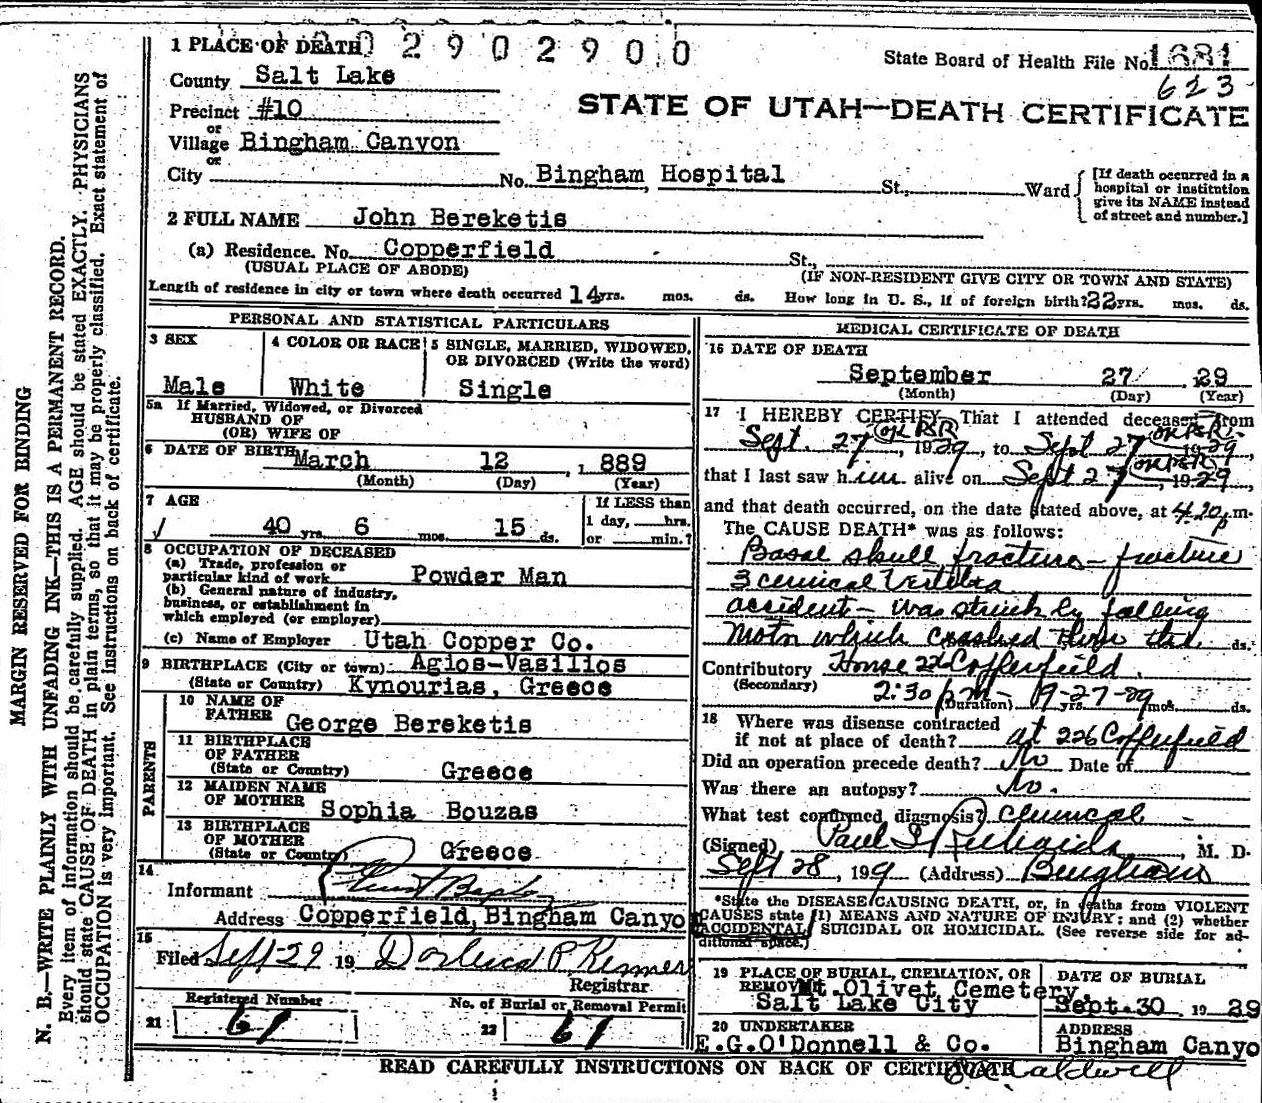 1 PLACE OF DEATH
2 9 0 2 9 0 0
State Board of Health File No. 1681
623
County Salt Lake
STATE OF UTAH—DEATH CERTIFICATE
Precinct #10
or
Village Bingham Canyon
or
City No. Bingham Hospital St., Ward
[If death occurred in a
hospital or institution
give its NAME instead
of street and number.]
2 FULL NAME John Bereketis
(a) Residence. No. Copperfield St.,
(USUAL PLACE OF ABODE) (IF NON-RESIDENT GIVE CITY OR TOWN AND STATE)
Length of residence in city or town where death occurred 14 yrs. mos. ds. How long in U. S., if of foreign birth? 22 yrs. mos. ds.
PERSONAL AND STATISTICAL PARTICULARS
3 SEX
Male
4 COLOR OR RACE
White
5 SINGLE, MARRIED, WIDOWED,
OR DIVORCED (Write the word)
Single
5a If Married, Widowed, or Divorced
HUSBAND OF
(OR) WIFE OF
6 DATE OF BIRTH March 12 , 1 889
(Month) (Day) (Year)
7 AGE
40 yrs. 6 mos. 15 ds.
If LESS than
1 day, hrs.
or min.?
8 OCCUPATION OF DECEASED
(a) Trade, profession or
particular kind of work Powder Man
(b) General nature of industry,
business, or establishment in
which employed (or employer)
(c) Name of Employer Utah Copper Co.
9 BIRTHPLACE (City or town) Agios-Vasilios
(State or Country) Kynourias, Greece
PARENTS
10 NAME OF
FATHER George Bereketis
11 BIRTHPLACE
OF FATHER
(State or Country) Greece
12 MAIDEN NAME
OF MOTHER Sophia Bouzas
13 BIRTHPLACE
OF MOTHER
(State or Country) Greece
14
Informant
Address Copperfield, Bingham Canyo
15
Filed Sept-29 19
Registrar
Registered Number
21 61
No. of Burial or Removal Permit
22 61
MEDICAL CERTIFICATE OF DEATH
16 DATE OF DEATH
September 27 29
(Month) (Day) (Year)
17 I HEREBY CERTIFY, That I attended deceased from
Sept. 27, 1929, to Sept 27 1929,
that I last saw him alive on Sept 27, 1929,
and that death occurred, on the date stated above, at 4.20 p m.
The CAUSE DEATH* was as follows:
Basal skull fracture - fracture
3 cervical Vertebra
accident - was struck by falling
Motor which crashed thru the ds.
Contributory House 22 Copperfield.
(Secondary) 2:30 pm - 9-27-29
(Duration) yrs. mos. ds.
18 Where was disease contracted
if not at place of death? at 226 Copperfield
Did an operation precede death? No Date of
Was there an autopsy? No.
What test confirmed diagnosis? Clinical
(Signed) Paul S Richards, M. D.
Sept 28, 199 (Address) Bingham
*State the DISEASE CAUSING DEATH, or, in deaths from VIOLENT
CAUSES state (1) MEANS AND NATURE OF INJURY; and (2) whether
ACCIDENTAL, SUICIDAL OR HOMICIDAL. (See reverse side for ad-
ditional space.)
19 PLACE OF BURIAL, CREMATION, OR
REMOVAL Mt. Olivet Cemetery,
Salt Lake City
DATE OF BURIAL
Sept. 30 19 29
20 UNDERTAKER
E.G.O'Donnell & Co.
ADDRESS
Bingham Canyo
READ CAREFULLY INSTRUCTIONS ON BACK OF CERTIFICATE
Caldwell
MARGIN RESERVED FOR BINDING
N. B.—WRITE PLAINLY WITH UNFADING INK—THIS IS A PERMANENT RECORD.
Every item of information should be carefully supplied. AGE should be stated EXACTLY. PHYSICIANS
should state CAUSE OF DEATH in plain terms, so that it may be properly classified. Exact statement of
OCCUPATION is very important. See instructions on back of certificate.